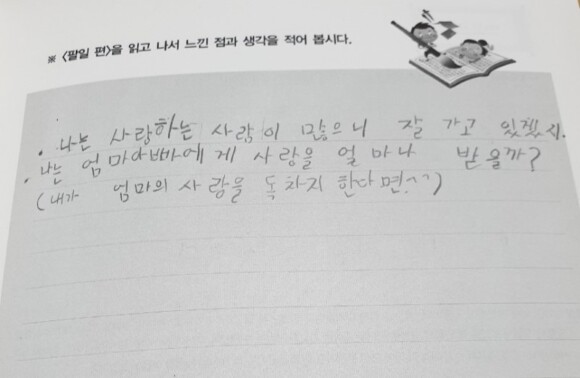 ※ 〈팔일 편〉을 읽고 나서 느낀 점과 생각을 적어 봅시다.
. 나는 사랑하는 사람이 많으니 잘 가고 있겠지.
. 나는 엄마아빠에게 사랑을 얼마나 받을까?
(내가 엄마의 사랑을 독차지 한다면^^)